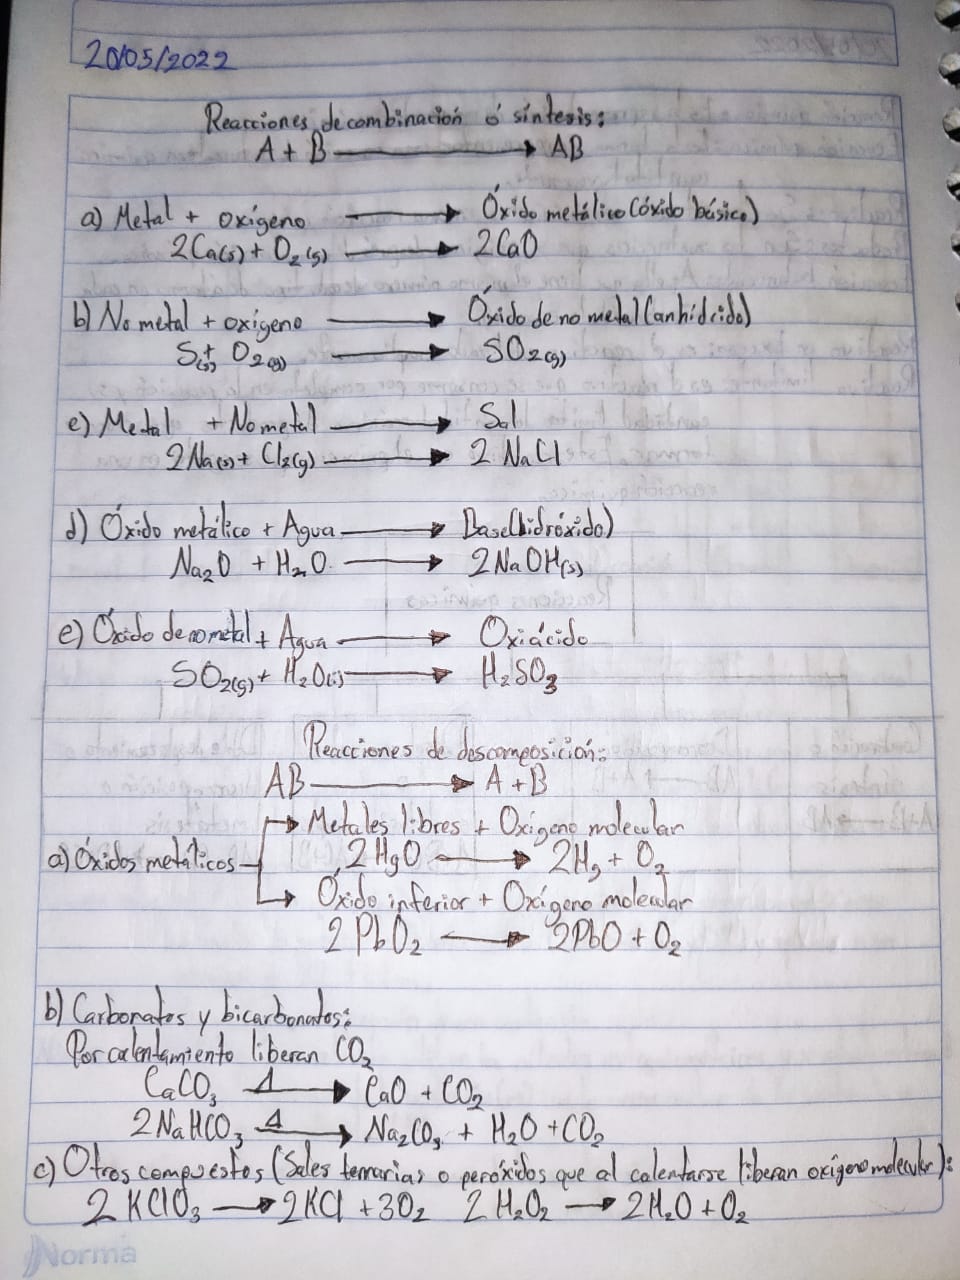 20/05/2022
Reacciones de combinación ó síntesis:
A + B → AB
a) Metal + oxígeno → Óxido metálico (óxido básico)
2Ca(s) + O₂(g) → 2CaO
b) No metal + oxígeno → Óxido de no metal (anhídrido)
S(s) + O₂(g) → SO₂(g)
c) Metal + No metal → Sal
2Na(s) + Cl₂(g) → 2 NaCl
d) Óxido metálico + Agua → Base (hidróxido)
Na₂O + H₂O → 2NaOH(s)
e) Óxido de no metal + Agua → Oxiácido
SO₂(g) + H₂O(l) → H₂SO₃
Reacciones de descomposición:
AB → A + B
→ Metales libres + Oxígeno molecular
a) Óxidos metálicos 2HgO → 2Hg + O₂
→ Óxido inferior + Oxígeno molecular
2 PbO₂ → 2PbO + O₂
b) Carbonatos y bicarbonatos:
Por calentamiento liberan CO₂
CaCO₃ Δ→ CaO + CO₂
2NaHCO₃ Δ→ Na₂CO₃ + H₂O + CO₂
c) Otros compuestos (Sales ternarias o peróxidos que al calentarse liberan oxígeno molecular):
2 KClO₃ → 2KCl + 3O₂ 2 H₂O₂ → 2H₂O + O₂
Norma